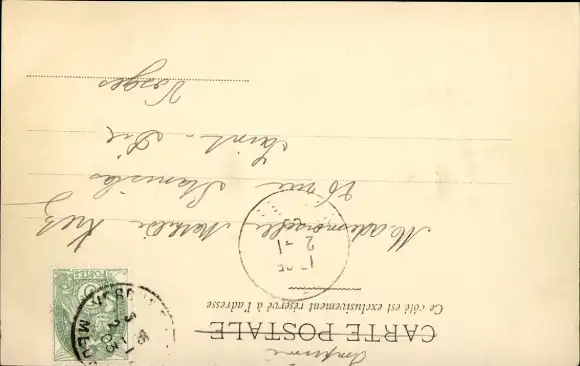 Imprimé
CARTE POSTALE
Ce côté est exclusivement réservé à l'adresse
Mademoiselle Mathilde
26 rue Stanislas
Saint-Dié
Vosges
POSTES